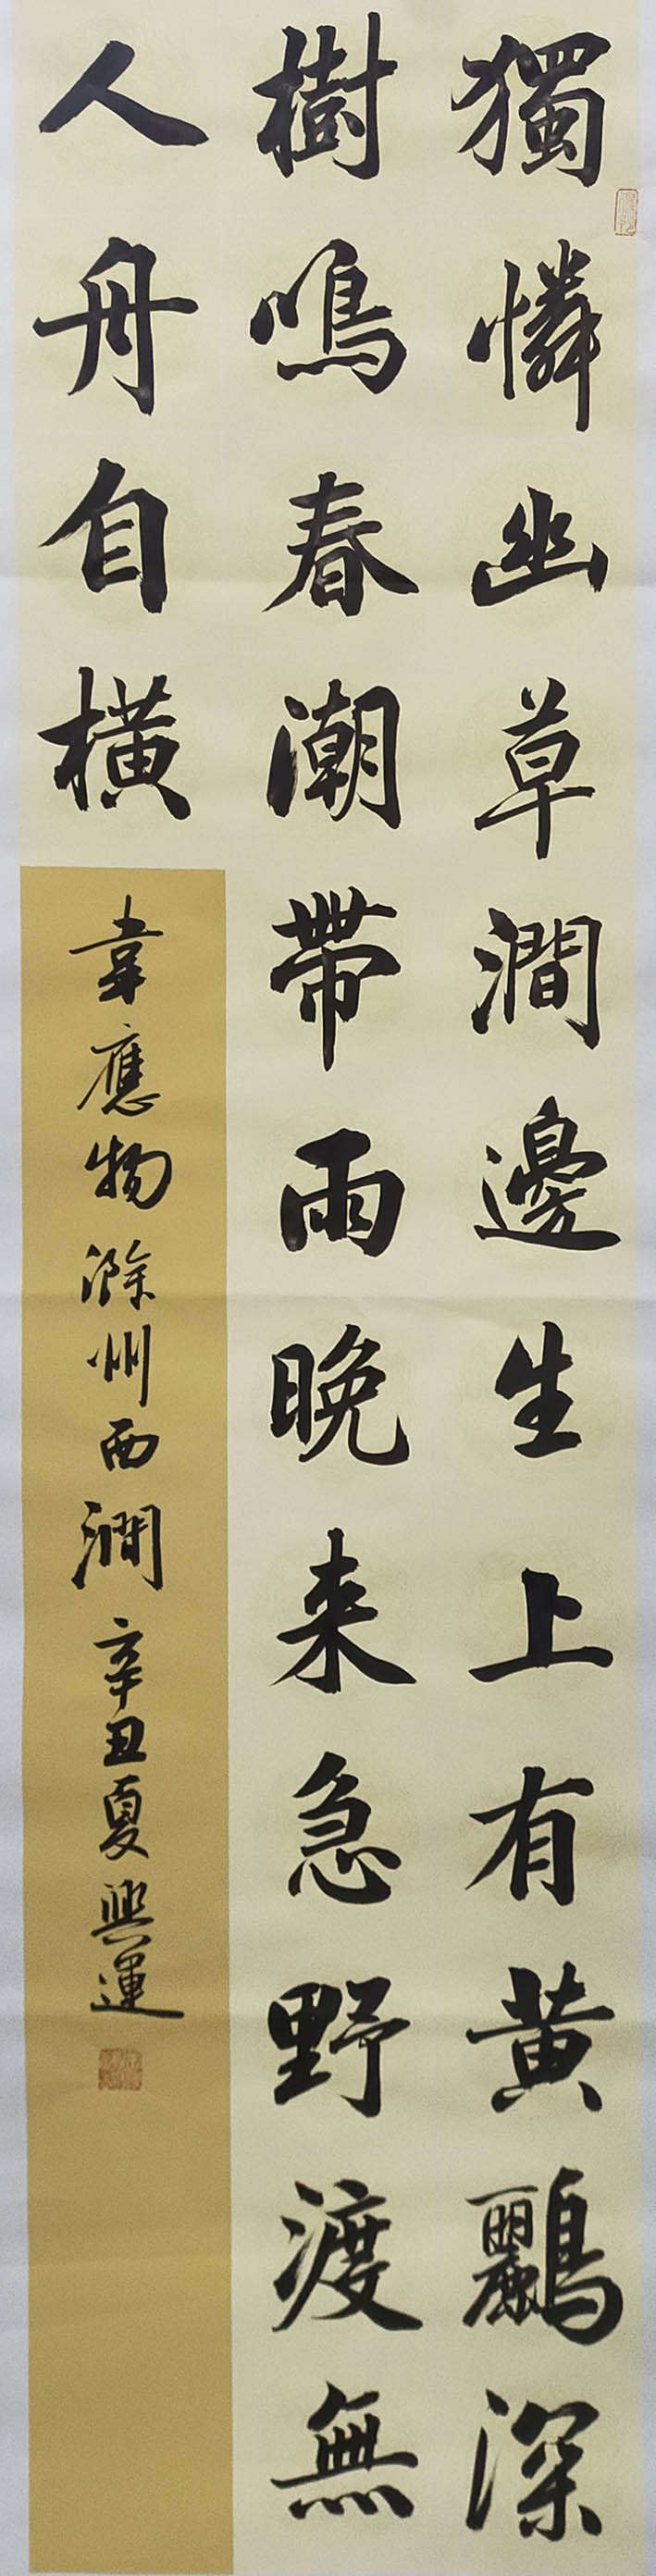 獨憐幽草澗邊生上有黄鸝深
樹鳴春潮帶雨晚来急野渡無
人舟自横
韋應物滁州西澗辛丑夏興運